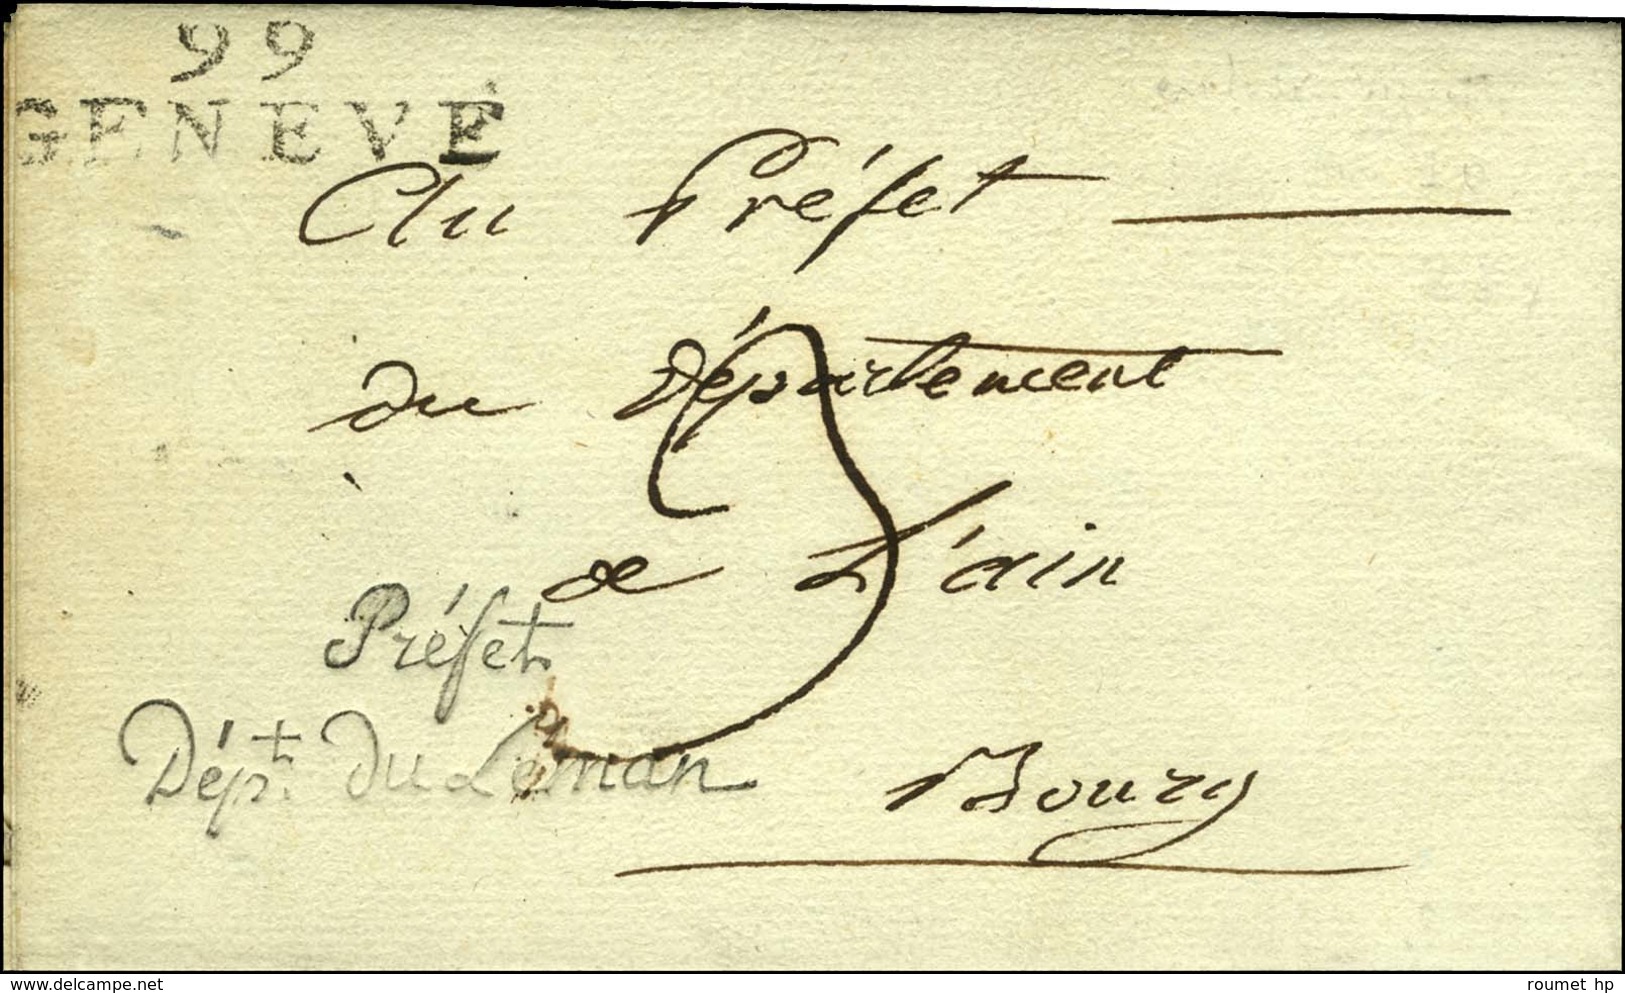 99
GENEVE
Au Préfet
du Département
3
de L'ain
Préfet
Dépt. du Léman
Bourg
delcampe.net
roumet hp